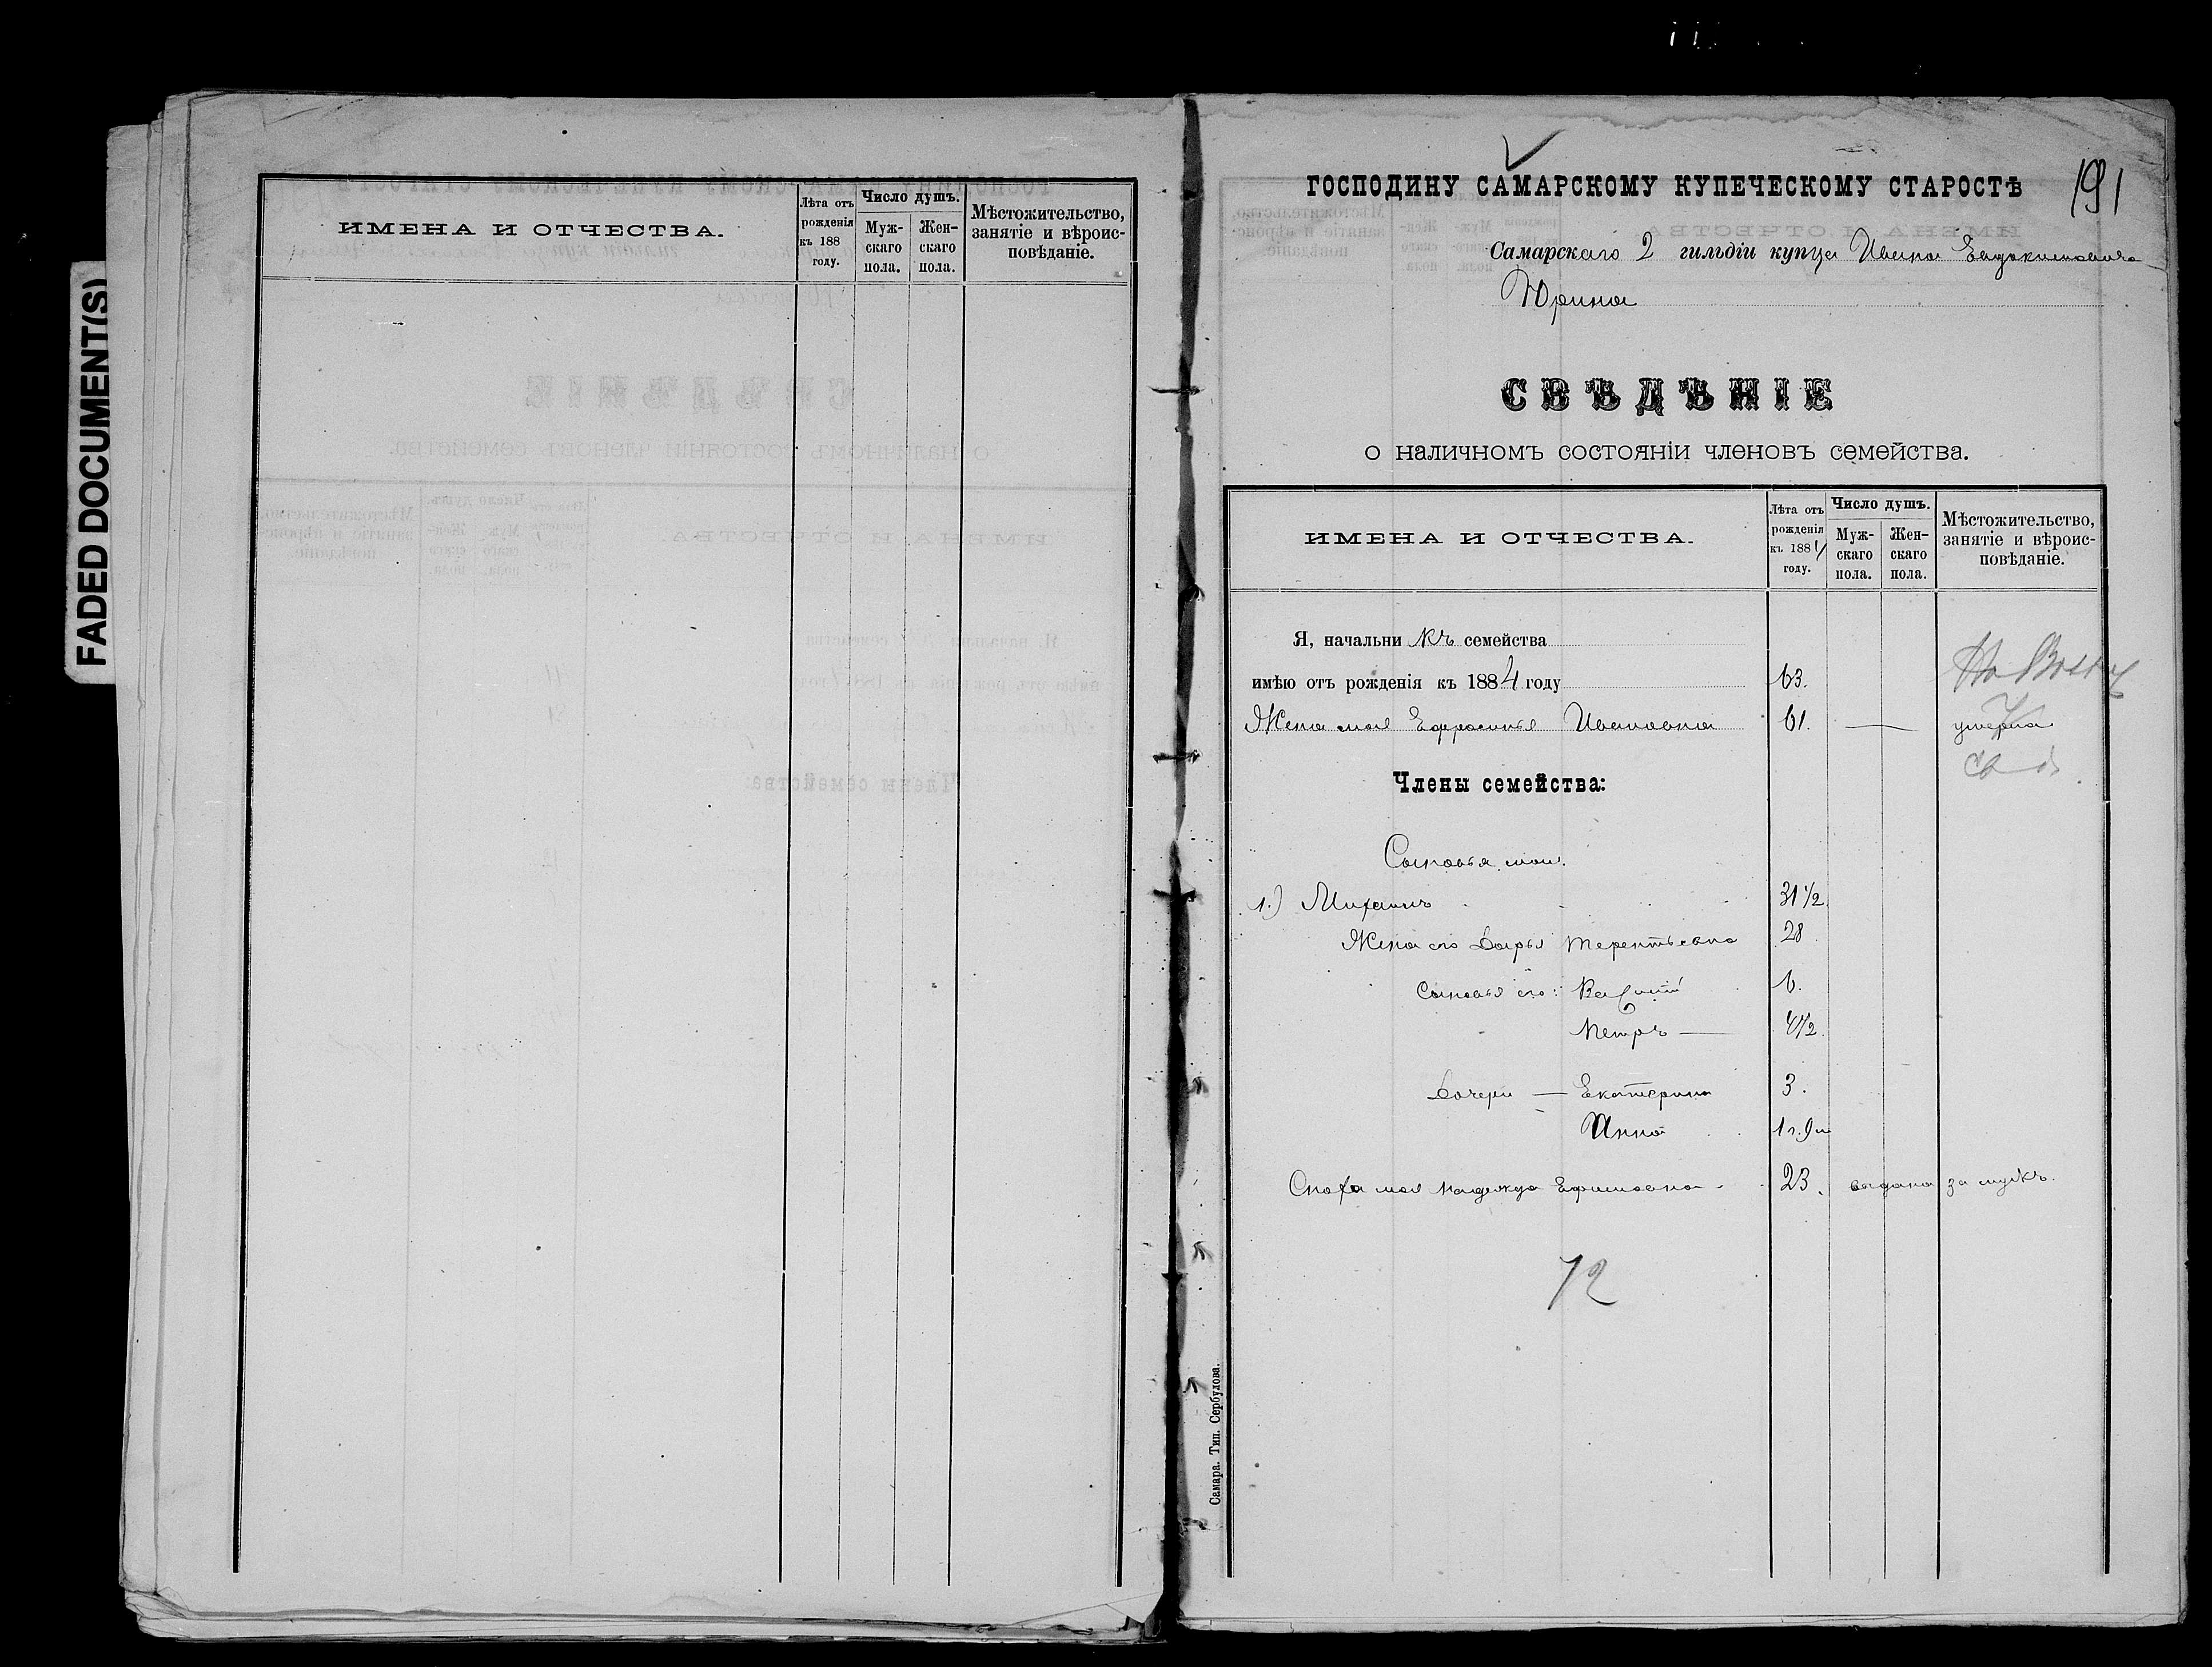 FADED DOCUMENT(S)
ИМЕНА И ОТЧЕСТВА.
Лѣта отъ рожденія къ 188 году.
Число душъ.
Муж-скаго пола.
Жен-скаго пола.
Мѣстожительство, занятіе и вѣроис-повѣданіе.
191
ГОСПОДИНУ САМАРСКОМУ КУПЕЧЕСКОМУ СТАРОСТѢ
Самарскаго 2 гильдіи купца Ивана Евдокимовича
Юрина
СВѢДѢНІЕ
о наличномъ состояніи членовъ семейства.
ИМЕНА И ОТЧЕСТВА.
Лѣта отъ рожденія къ 1884 году.
Число душъ.
Муж-скаго пола.
Жен-скаго пола.
Мѣстожительство, занятіе и вѣроис-повѣданіе.
Я, начальникъ семейства
имѣю отъ рожденія къ 1884 году 63.
Жена моя Ефросинья Ивановна 61. — умерла
Члены семейства:
Сыновья мои:
1.) Михаилъ 31 1/2.
Жена его Дарья Терентьевна 28
Сыновья его: Василій 6.
Петръ — 4 1/2.
Дочери — Екатерина 3.
Анна 1 г. 9 м
Сноха моя Надежда Ефимовна 23. выдана за мужъ.
72
Самара. Тип. Сербулова.